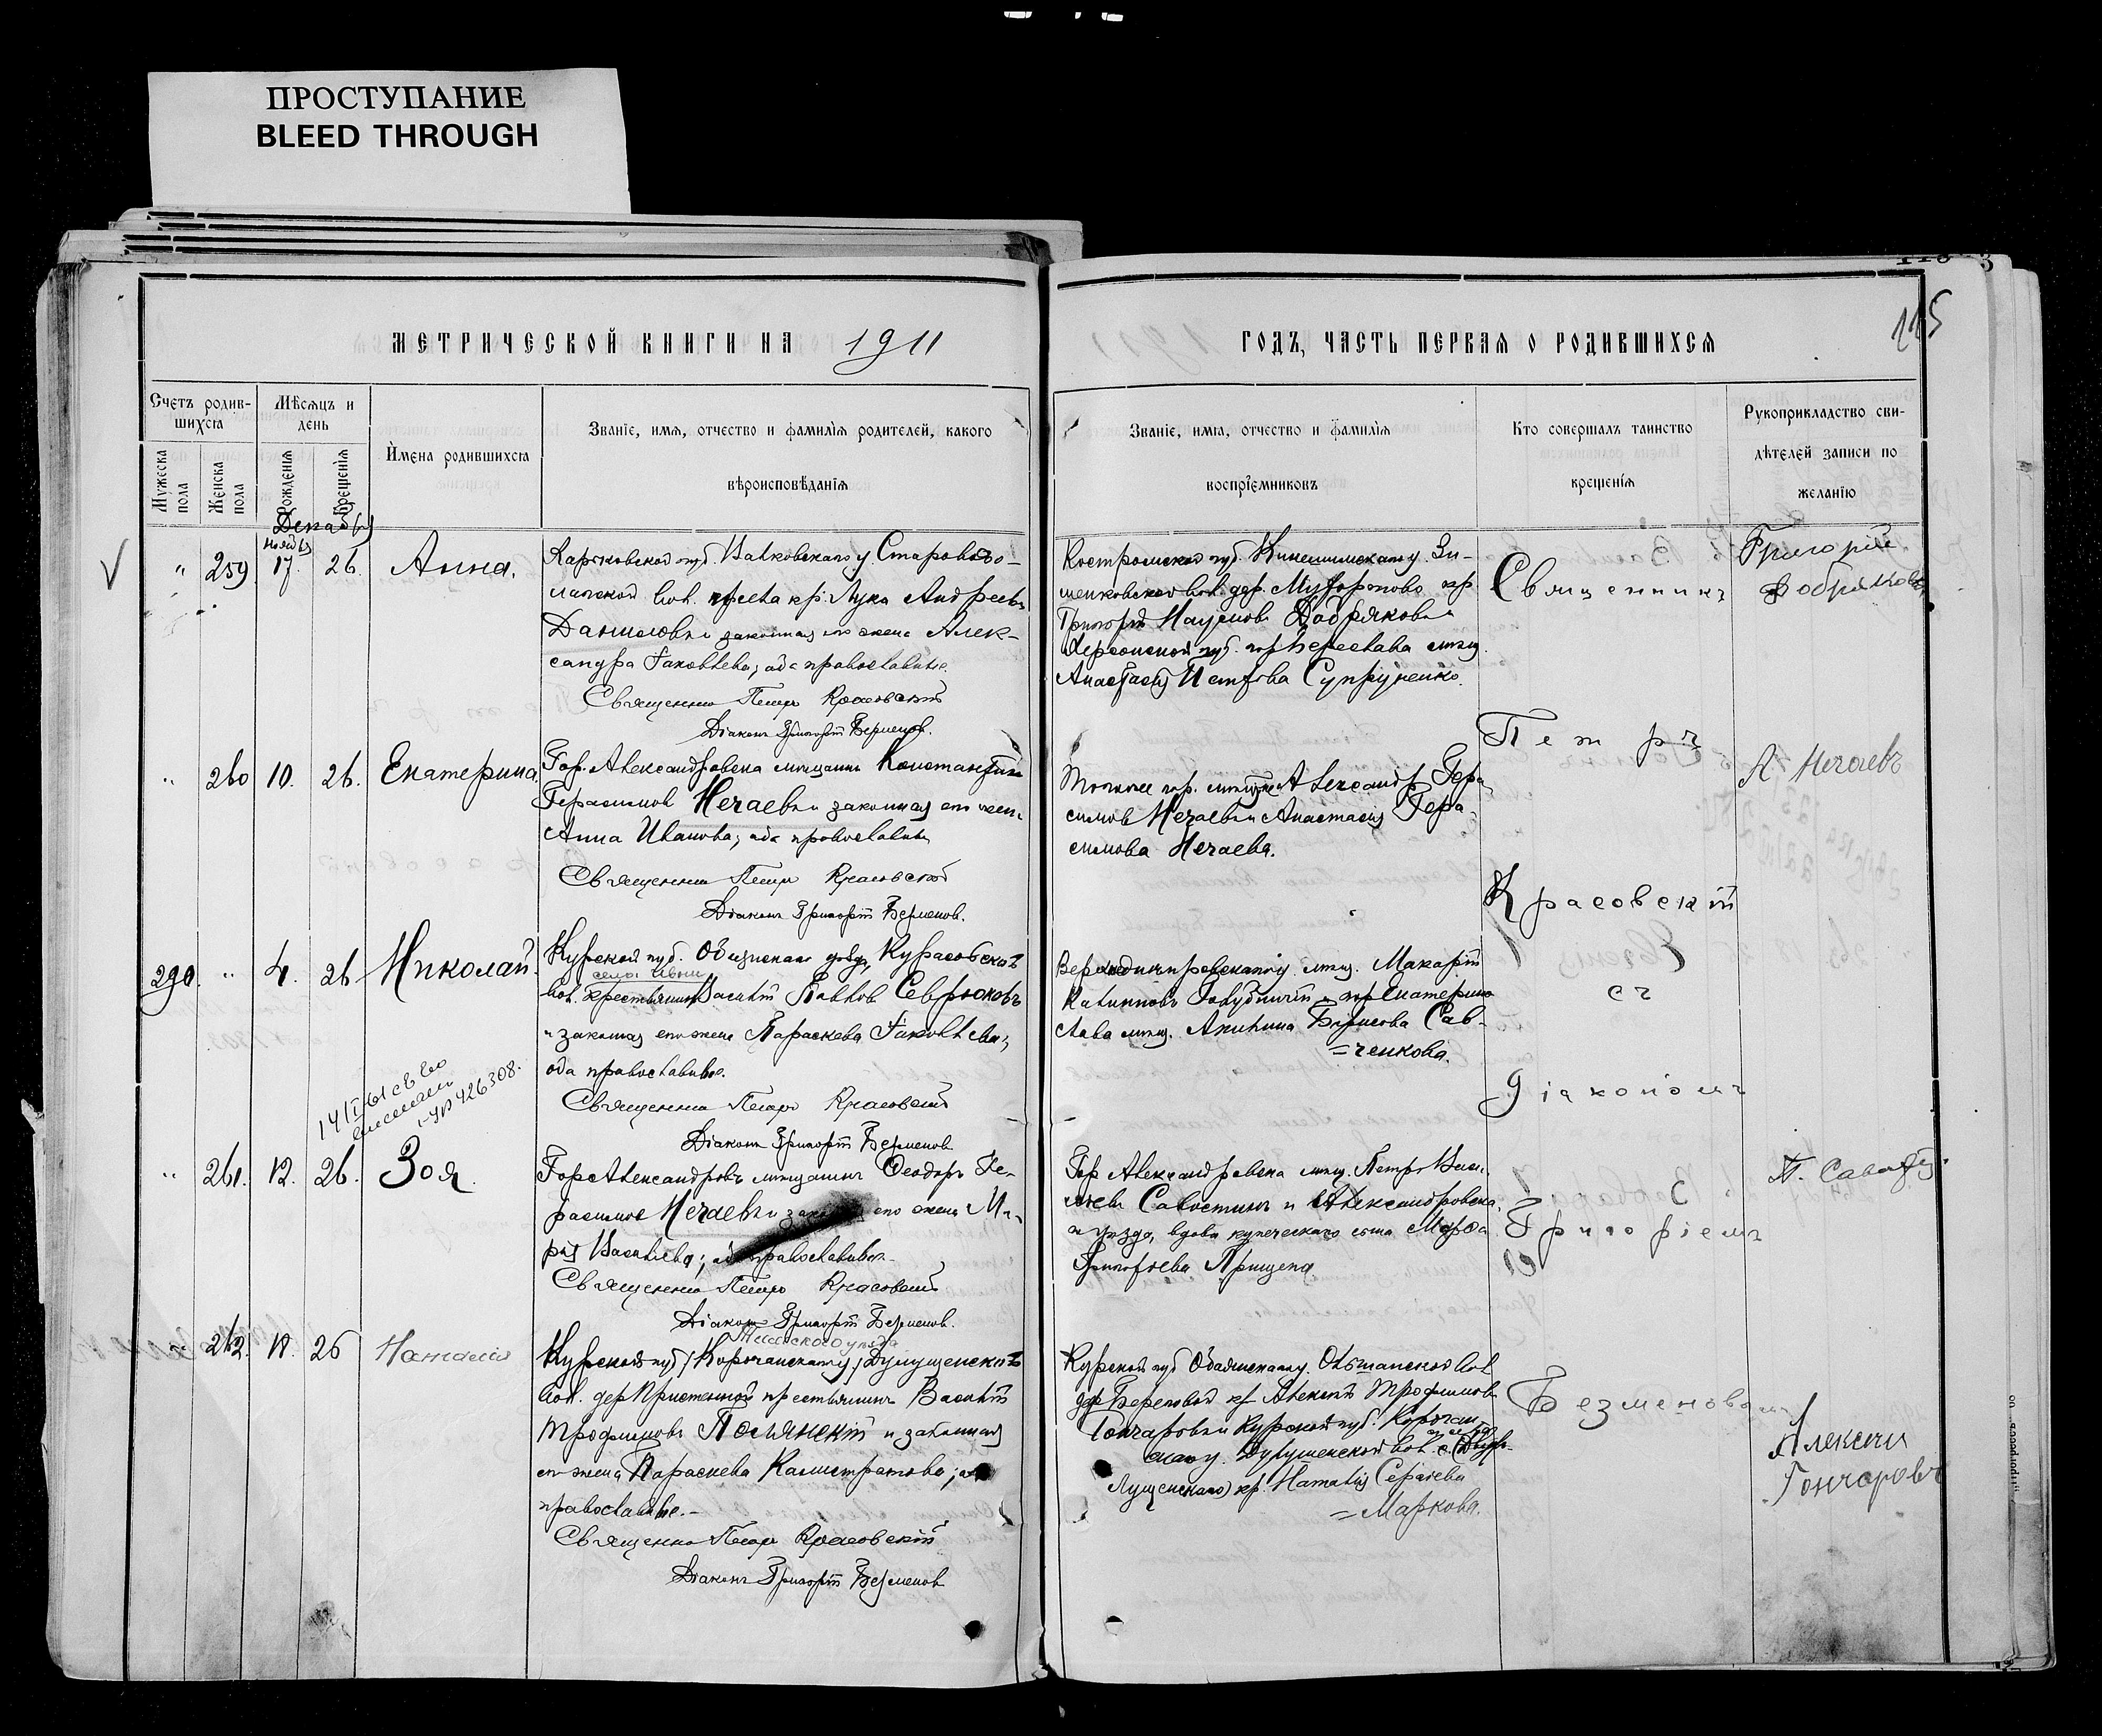 ПРОСТУПАНИЕ
BLEED THROUGH
115
МЕТРИЧЕСКОЙ КНИГИ НА 1911
ГОДЪ, ЧАСТЬ ПЕРВАЯ О РОДИВШИХСЯ
Счетъ родив-
шихся
Мужеска пола
Женска пола
Мѣсяцъ и
день
Рожденія
Крещенія
Имена родившихся
Званіе, имя, отчество и фамилія родителей, какого
вѣроисповѣданія
Званіе, имя, отчество и фамилія
воспріемниковъ
Кто совершалъ таинство
крещенія
Рукоприкладство сви-
дѣтелей записи по
желанію
Декабрь
Ноябрь
" 259 17. 26. Анна.
Харьковской губ. Валковскаго у. Старово-
кр. Лука Андреевъ
Даниловъ и законная его жена Алек-
сандра Іаковлева; оба православные.
Священникъ Петръ Красовскій
Діаконъ Григорій Безменовъ.
Костромской губ. Кинешемскаго у. Зи-
менковской вол. дер. кр.
Григорій Наумовъ Добряковъ и
Херсонской губ. гор. Береслава мѣщ.
Анастасія Петрова Супруненко.
Григорій
Добряковъ
" 260 10. 26. Екатерина.
Гор. Александровска мѣщанинъ Константинъ
Герасимовъ Нечаевъ и законная его жена
Анна Иванова; оба православные
Священникъ Петръ Красовскій
Діаконъ Григорій Безменовъ.
Того же гор. мѣщане Александръ Гера-
симовъ Нечаевъ и Анастасія Гера-
симова Нечаева.
А. Нечаевъ
290. " 4. 26 Николай.
Курской губ. Обоянскаго уѣзда, Курасовской
вол. села крестьянинъ Василій Павловъ Севрюковъ
и законная его жена Параскева Іаковлева;
оба православные.
Священникъ Петръ Красовскій
Діаконъ Григорій Безменовъ
Верхнеднѣпровскаго у. мѣщ. Макарій
Калинновъ Голубничій и гор. Екатерино-
слава мѣщ. Акилина Борисова Сав-
=ченкова.
426308.
" 261. 12. 26. Зоя.
Гор. Александровска мѣщанинъ Ѳеодоръ Ге-
расимовъ Нечаевъ и законная его жена Ма-
рія Васильева; оба православные.
Священникъ Петръ Красовскій
Діаконъ Григорій Безменовъ.
Гор. Александровска мѣщ. Петръ Васи-
льевъ Савостинъ и Александровска-
го уѣзда, вдова купеческаго сына Марѳа
Григорьева Прищепа
П.
" 262. 12. 26 Наталія
Курской губ. Корочанскаго у.
вол. дер. Пристенной крестьянинъ Василій
Трофимовъ Полянскій и законная
его жена Параскева Калистратова; оба
православные.-
Священникъ Петръ Красовскій
Діаконъ Григорій Безменовъ
Курской губ. Обоянскаго у. Ольшанской вол
дер. Березовой кр. Алексѣй Трофимовъ
Гончаровъ и Курской губ. Корочан-
скаго у. вол.
кр. Наталія Сергѣева
=Маркова.
Алексѣй
Гончаровъ
Священникъ
Петръ
Красовскій
съ
Діакономъ
Григоріемъ
Безменовымъ